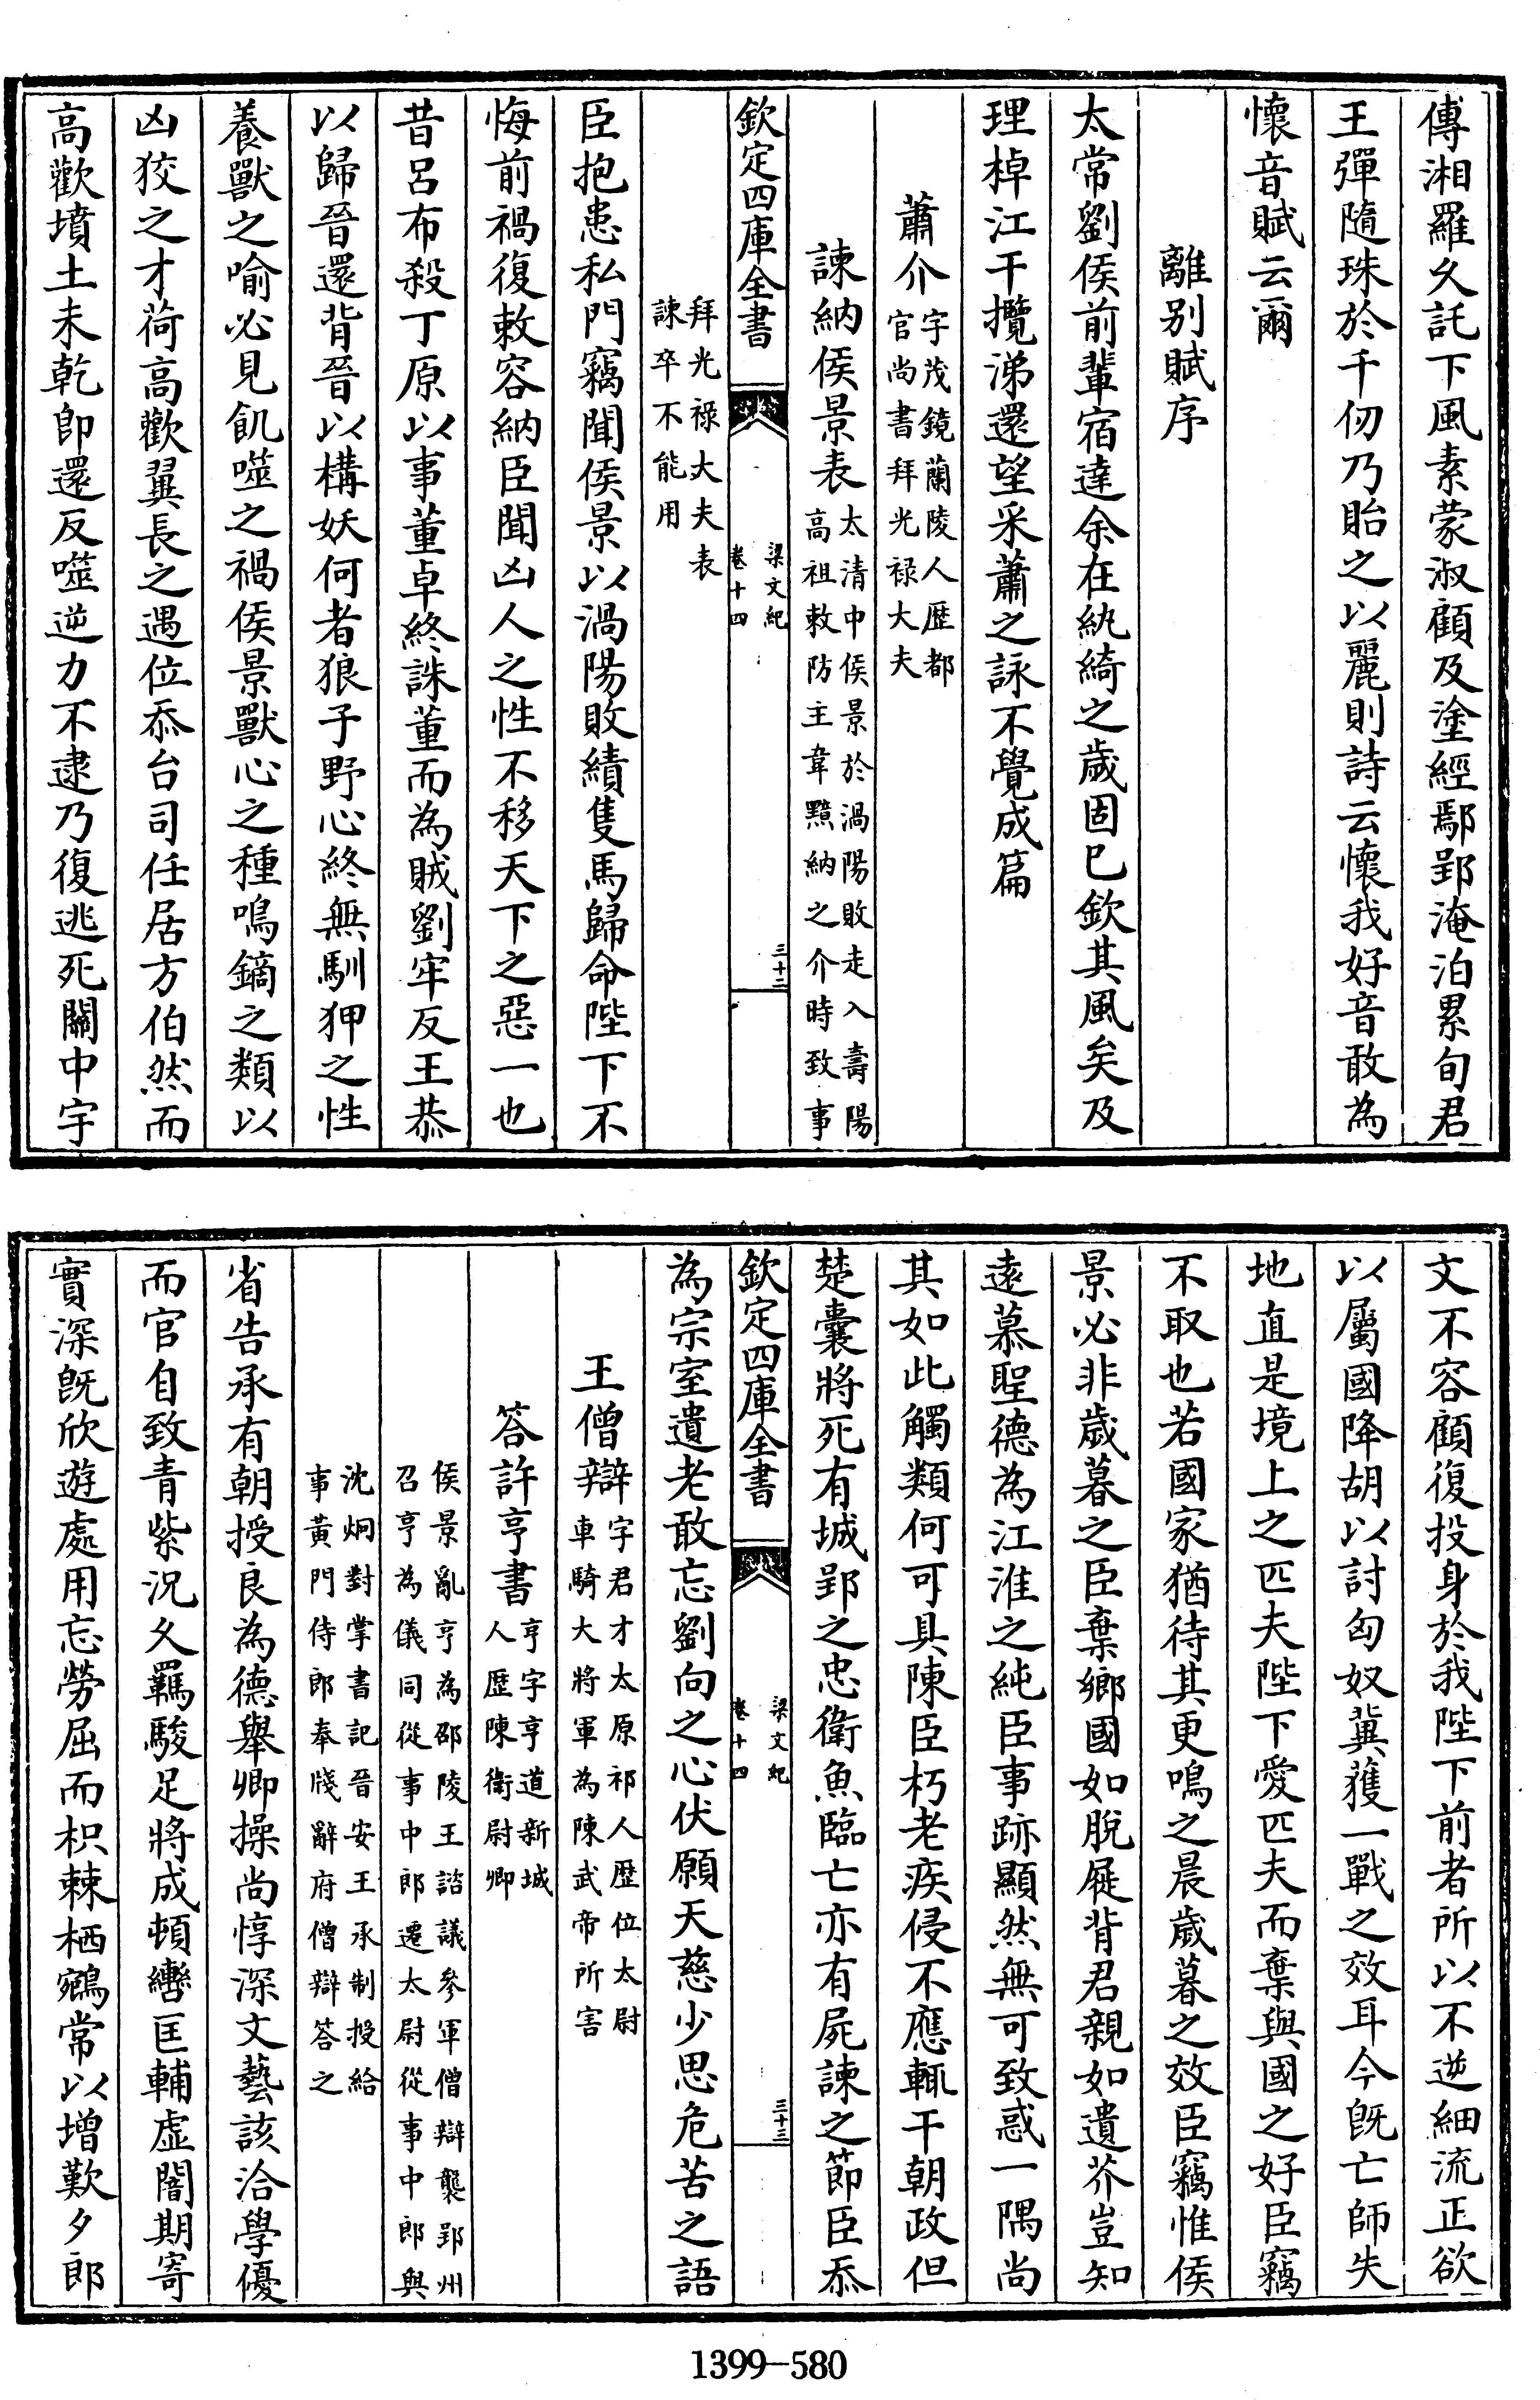 傳湘羅久託下風素蒙淑顧及塗經鄢郢淹泊累旬君
王彈隨珠於千仞乃貽之以麗則詩云懷我好音敢為
懷音賦云爾
離別賦序
太常劉侯前輩宿達余在紈綺之歲固已欽其風矣及
理棹江干攬涕還望采蕭之詠不覺成篇
蕭介字茂鏡蘭陵人歷都
官尚書拜光祿大夫
諫納侯景表太清中侯景於渦陽敗走入壽陽
高祖敕防主韋黯納之介時致事
欽定四庫全書
梁文紀
卷十四
三十二
拜光祿大夫表
諫卒不能用
臣抱患私門竊聞侯景以渦陽敗績隻馬歸命陛下不
悔前禍復敕容納臣聞凶人之性不移天下之惡一也
昔呂布殺丁原以事董卓終誅董而為賊劉牢反王恭
以歸晉還背晉以構妖何者狼子野心終無馴狎之性
養獸之喻必見飢噬之禍侯景獸心之種鳴鏑之類以
凶狡之才荷高歡翼長之遇位忝台司任居方伯然而
高歡墳土未乾卽還反噬逆力不逮乃復逃死關中宇
文不容顧復投身於我陛下前者所以不逆細流正欲
以屬國降胡以討匈奴冀獲一戰之效耳今旣亡師失
地直是境上之匹夫陛下愛匹夫而棄與國之好臣竊
不取也若國家猶待其更鳴之晨歲暮之效臣竊惟侯
景必非歲暮之臣棄鄉國如脫屣背君親如遺芥豈知
遠慕聖德為江淮之純臣事跡顯然無可致惑一隅尚
其如此觸類何可具陳臣朽老疾侵不應輒干朝政但
楚囊將死有城郢之忠衛魚臨亡亦有屍諫之節臣忝
欽定四庫全書
梁文紀
卷十四
三十三
為宗室遺老敢忘劉向之心伏願天慈少思危苦之語
王僧辯字君才太原祁人歷位太尉
車騎大將軍為陳武帝所害
答許亨書亨字亨道新城
人歷陳衛尉卿
侯景亂亨為邵陵王諮議參軍僧辯襲郢州
召亨為儀同從事中郎遷太尉從事中郎與
沈炯對掌書記晉安王承制授給
事黃門侍郎奉牋辭府僧辯答之
省告承有朝授良為德舉卿操尚惇深文藝該洽學優
而官自致青紫況久羈駿足將成頓轡匡輔虛闇期寄
實深旣欣遊處用忘勞屈而枳棘栖鵷常以增歎夕郎
1399-580